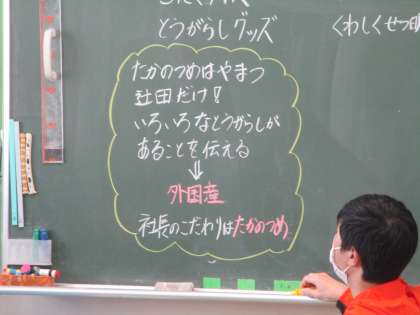 とうがらしグッズ
くわしくせつ
たかのつめはやまつ
辻田だけ！
いろいろなとうがらしが
あることを伝える
⇓
外国産
社長のこだわりはたかのつめ